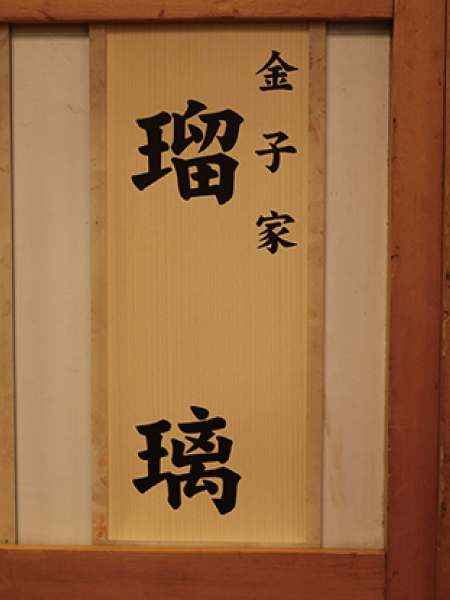 金子家
瑠璃